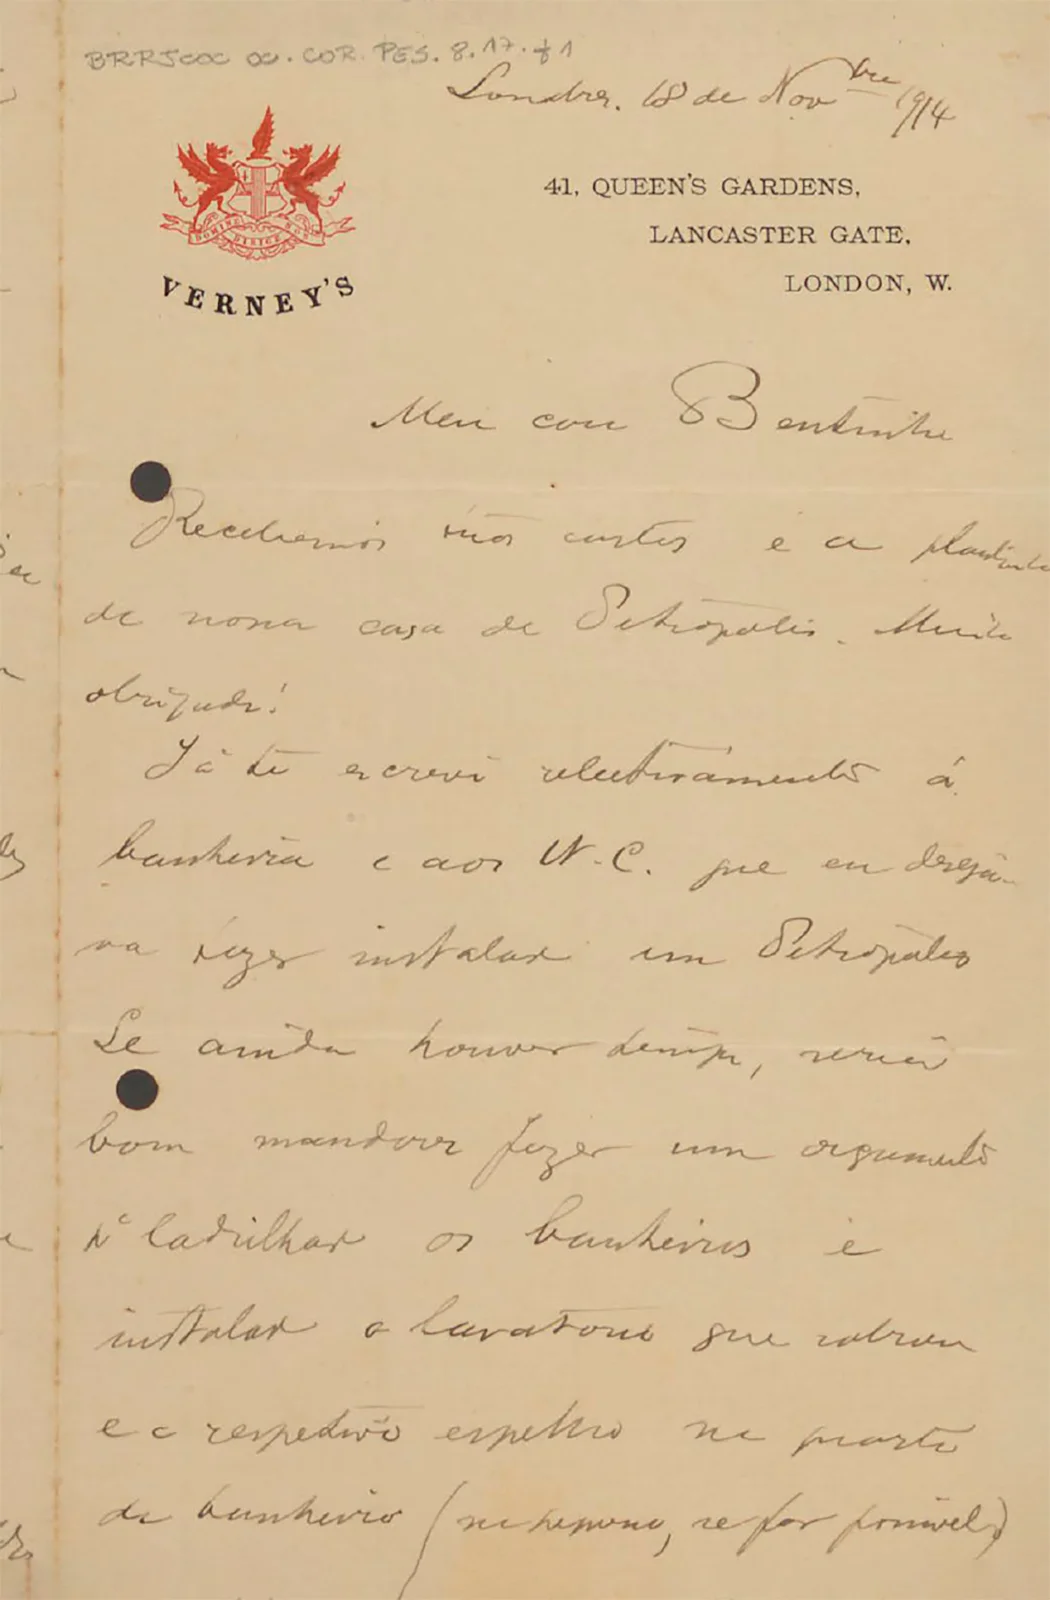 BRRJCOC OC. COR. PES. 8.17. f1
Londres, 18 de Novbre 1914
DOMINE DIRIGE NOS
VERNEY'S
41, QUEEN'S GARDENS,
LANCASTER GATE,
LONDON, W.
Meu caro Bentinho
Recebemos tuas cartas e a plantinha
de nossa casa de Petropolis. Muito
obrigado!
Já te escrevi relativamente á
banheira e aos W.C. que eu deseja-
va fazer instalar em Petropolis
Se ainda houver tempo, seria
bom mandar fazer um orçamento
pª ladrilhar os banheiros e
instalar o lavatorio que sobrou
e o respetivo espelho no quarto
de banheiro (no pequeno, se for possivel)